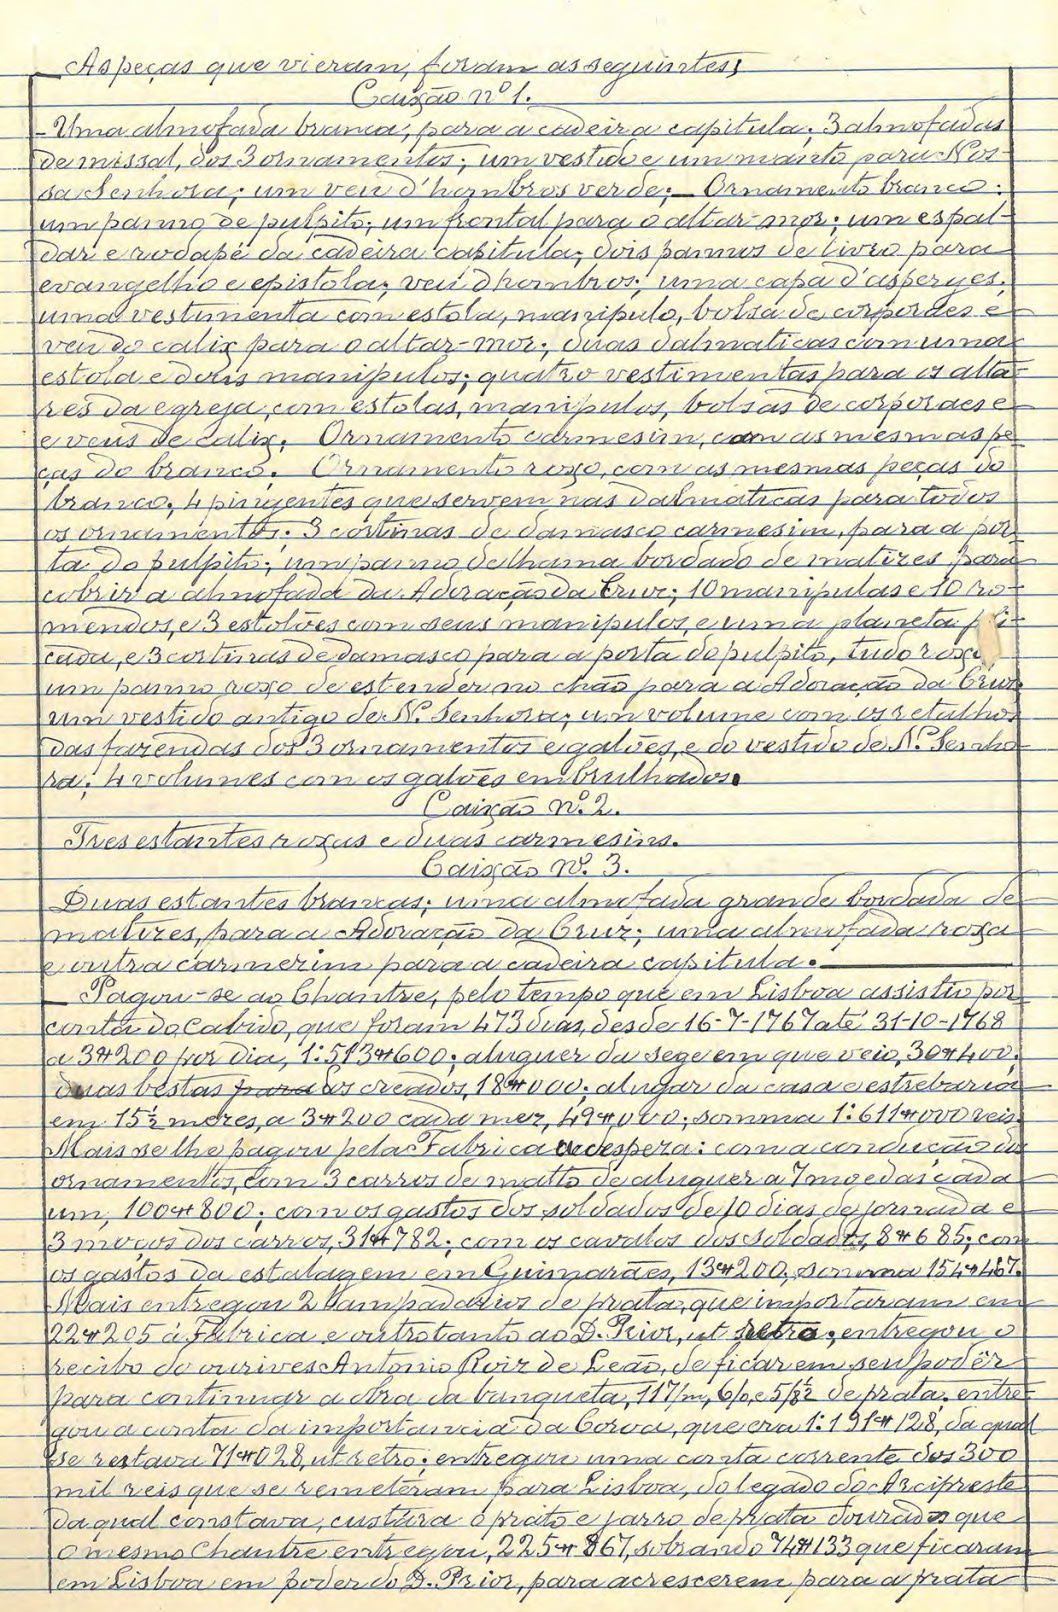 As peças que vieram, foram as seguintes;
Caixão nº 1.
- Uma almofada branca, para a cadeira capitula; 3 almofadas
de missal, dos 3 ornamentos; um vestido e um manto para Nos-
sa Senhora; um veu d'hombros verde; - Ornamento branco:
um panno de pulpito; um frontal para o altar-mor; um espal-
dar e rodapé da cadeira capitula; dois pannos de livro para
evangelho e epistola; veu d'hombros; uma capa d'asperges;
uma vestimenta com estola, manipulo, bolsa de corporaes e
veu do calix para o altar-mor; duas dalmaticas com uma
estola e dois manipulos; quatro vestimentas para os alta-
res da egreja, com estolas, manipulos, bolsas de corporaes e
e veus de calix; Ornamento carmesim, com as mesmas pe-
ças do branco; Ornamento roxo, com as mesmas peças do
branco; 4 pingentes que servem nas dalmaticas para todos
os ornamentos; 3 cortinas de damasco carmesim, para a por-
ta do pulpito; um panno de lhama bordado de matizes para
cobrir a almofada da Adoração da Cruz; 10 manipulas e 10 ro-
mendos, e 3 estolões com seus manipulos, e uma planeta
cada, e 3 cortinas de damasco para a porta do pulpito, tudo roxo;
um panno roxo de estender no chão para a Adoração da Cruz;
um vestido antigo de Nª Senhora; um volume com os retalhos
das fazendas dos 3 ornamentos e galões, e do vestido de Nª Senho-
ra; 4 volumes com os galões embrulhados.
Caixão Nº. 2.
Tres estantes roxas e duas carmesins.
Caixão Nº. 3.
Duas estantes brancas; uma almofada grande bordada de
matizes, para a Adoração da Cruz; uma almofada roxa
e outra carmezim para a cadeira capitula.
- Pagou-se ao Chantre, pelo tempo que em Lisboa assistio por
conta do Cabido, que foram 473 dias, desde 16-7-1767 até 31-10-1768
a 3#200 por dia, 1:513#600; aluguer da sege em que veio, 30#400;
duas bestas para os creados, 18#000; alugar da casa e estrebaria
em 15½ mezes, a 3#200 cada mez, 49#000; somma 1:611#000 reis.
Mais se lhe pagou pela Fabrica a despeza: com a condução dos
ornamentos, com 3 carros de matto de aluguer a 7 moedas cada
um, 100#800; com os gastos dos soldados de 10 dias de jornada e
3 moços dos carros, 31#782; com os cavalos dos soldados, 8#685; com
os gastos da estalagem em Guimarães, 13#200, somma 154#467.
Mais entregou 2 lampadarios de prata, que importaram em
22#205 á Fabrica e outro tanto ao D. Prior, ut retro; entregou o
recibo do ourives Antonio Roiz de Leão, de ficar em seu podêr
para continuar a obra da banqueta, 117/m, 6/o, e 5/8½ de prata; entre-
gou a conta da importancia da Coroa, que era 1:191#128, da qual
se restava 71#028, ut retro; entregou uma conta corrente dos 300
mil reis que se remeteram para Lisboa, do legado do Arcipreste
da qual constava, custára o prato e jarro de prata dourados que
o mesmo Chantre entregou, 225#867, sobrando 74#133 que ficaram
em Lisboa em poder do D. Prior, para acrescerem para a prata